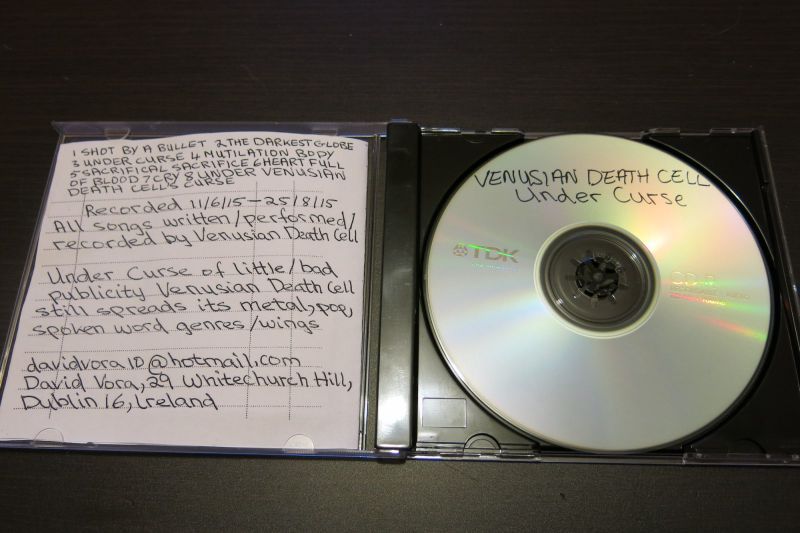 1 SHOT BY A BULLET 2 THE DARKEST GLOBE
3 UNDER CURSE 4 MUTILATION BODY
5 SACRIFICAL SACRIFICE 6 HEART FULL
OF BLOOD 7 CRY 8 UNDER VENUSIAN
DEATH CELL'S CURSE
Recorded 11/6/15-25/8/15
All songs written/performed/
recorded by Venusian Death Cell
Under Curse of little/bad
publicity Venusian Death Cell
still spreads its metal, pop,
spoken word genres/wings
davidvora1D@hotmail.com
David Vora, 29 Whitechurch Hill,
Dublin 16, Ireland
VENUSIAN DEATH CELL
Under Curse
TDK
CD-R